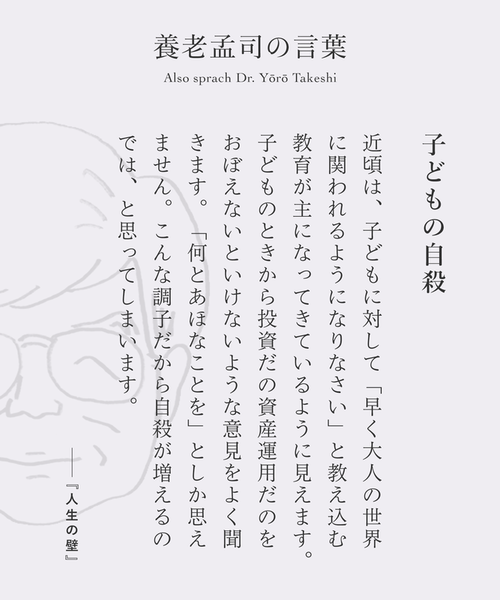 養老孟司の言葉
Also sprach Dr. Yōrō Takeshi
子どもの自殺
近頃は、子どもに対して「早く大人の世界
に関われるようになりなさい」と教え込む
教育が主になってきているように見えます。
子どものときから投資だの資産運用だのを
おぼえないといけないような意見をよく聞
きます。「何とあほなことを」としか思え
ません。こんな調子だから自殺が増えるの
では、と思ってしまいます。
――『人生の壁』